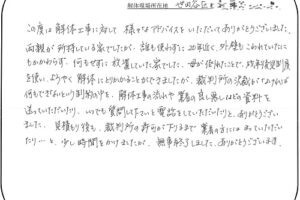 解体現場所在地 世田谷区
この度は解体工事に対して 様々なアドバイスをいただいてありがとうございました。
両親が所持している家でしたが、誰も使わずに20年近く、外壁もこわれていたにも
かかわらず、何もせずに放置していた家でした。母が他界したことで、成年後見制度
を使い、ようやく解体にとりかかることができましたが、裁判所の決裁が下りなければ
何もできないという制約の中を、解体工事の流れや業者の良し悪しなどの資料を
送っていただいたり、いつでも質問して下さいと電話をしていただいたりと、ありがとうござい
ました。見積もり後も、裁判所の許可が下りるまで業者の方にはまっていただい
たり…と、少し時間をかけましたが、無事終了しました。ありがとうございます。